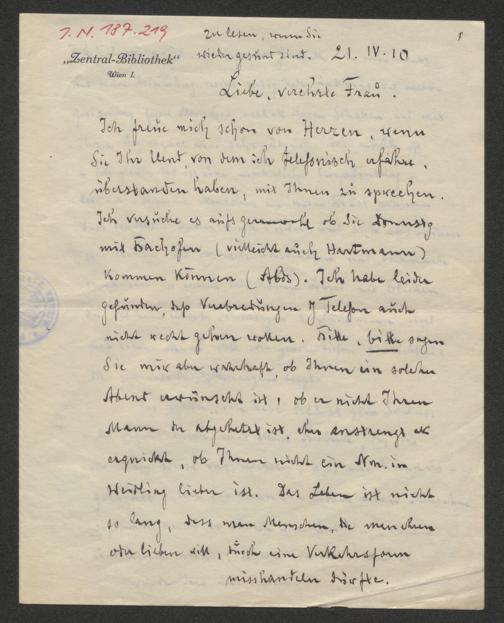 J. N. 187.219
zu lesen, wenn Sie
wieder gesund sind. 21. IV. 10
„Zentral-Bibliothek“
Wien I.
Liebe, verehrte Frau.
Ich freue mich schon von Herzen, wenn
Sie Ihr Übel, von dem ich telefonisch erfahre,
überstanden haben, mit Ihnen zu sprechen.
Ich versuche es aufs ob Sie
mit Bachofen (vielleicht auch Hartmann)
kommen können (Abds). Ich habe leider
gefunden, daß Verabredungen Telefon auch
nicht recht gehen wollen. Bitte, bitte sagen
Sie mir aber wahrhaft, ob Ihnen ein solcher
Abend erwünscht ist, ob er nicht Ihren
Mann der abgehetzt ist, eher anstrengt als
erquickt, ob Ihnen nicht ein Nm. in
Weidling lieber ist. Das Leben ist nicht
so lang, dass man Menschen, die man ehren
oder lieben will, durch eine Verkehrsform
misshandeln dürfte.